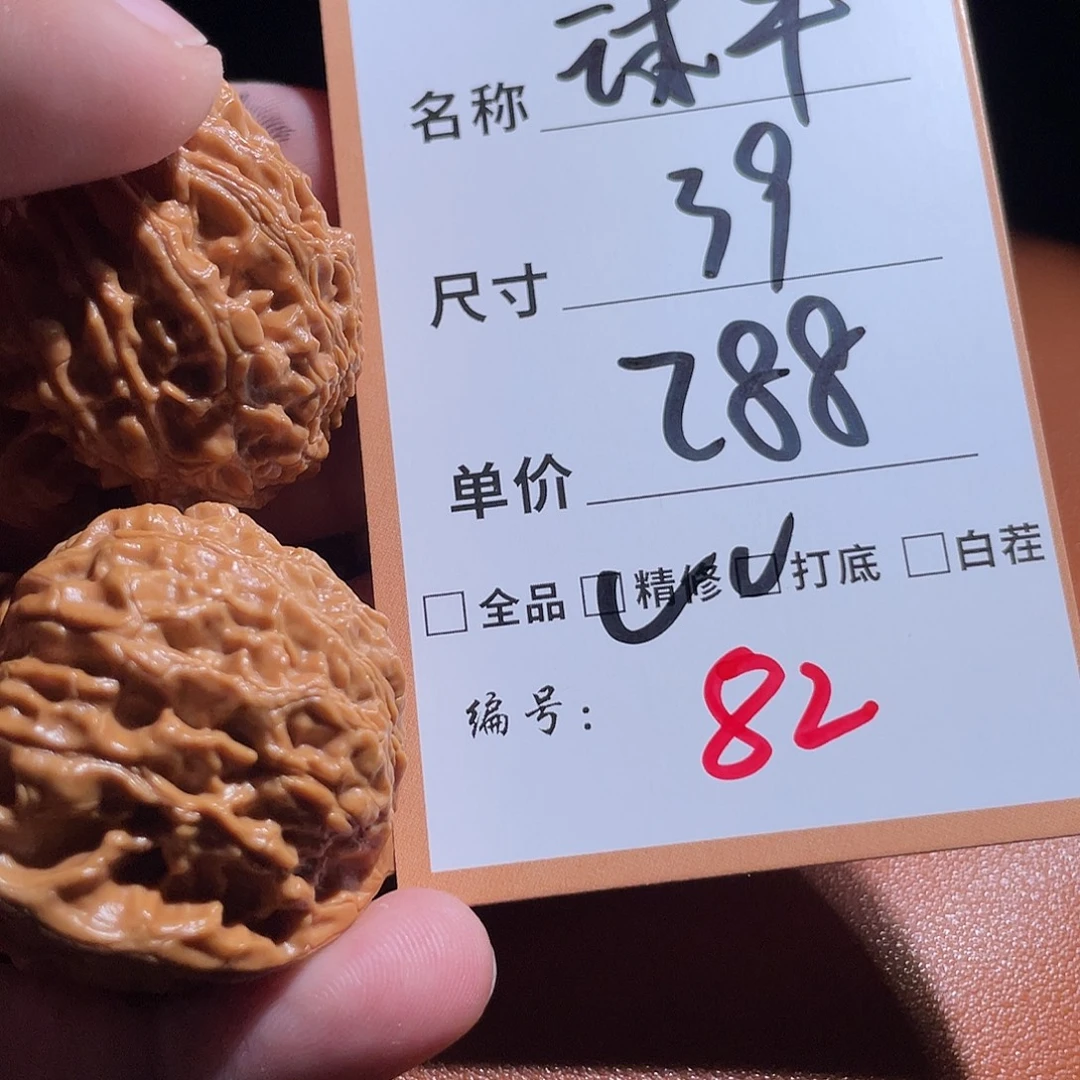 名称
尺寸 39
单价 288
□ 全品 □ 精修 □ 打底 □ 白茬
编号: 82